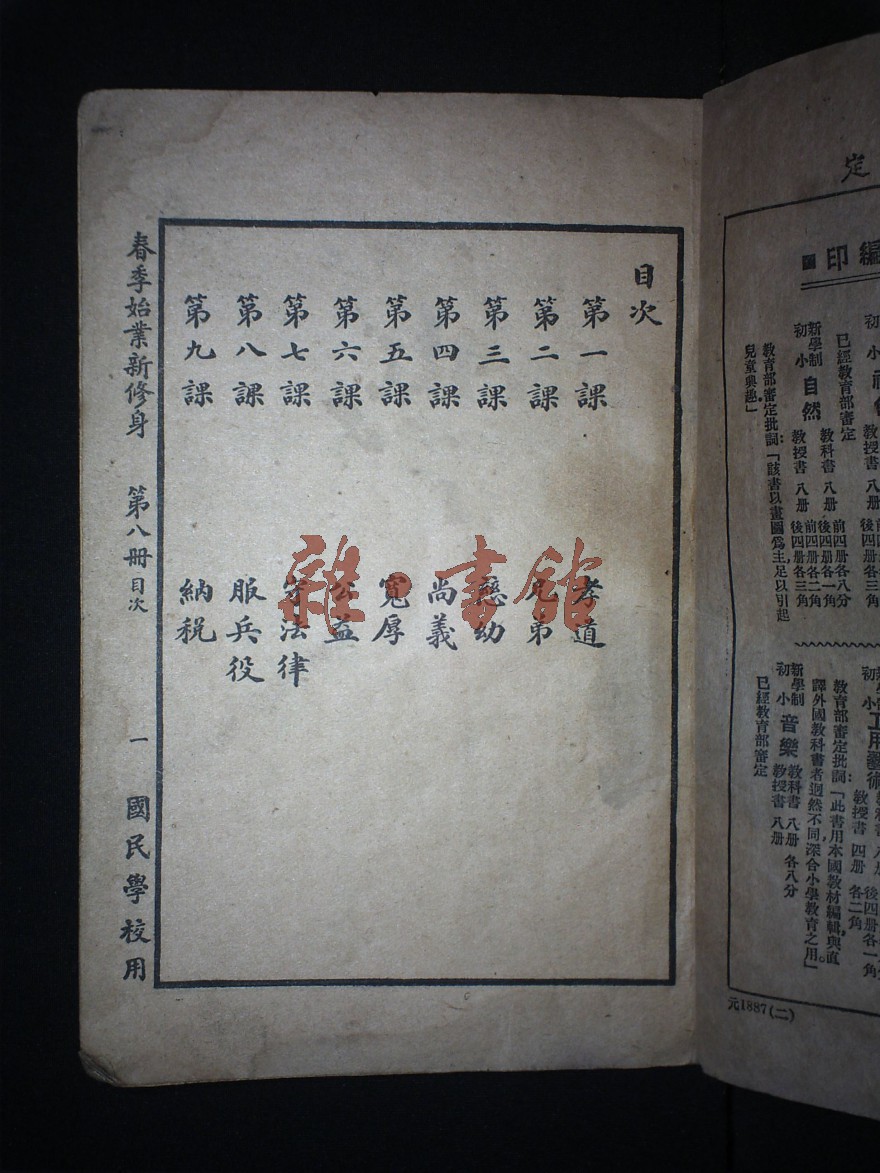 定
編印
已經教育部審定
新學制初小 自然 教科書 八册 前四册各八分 後四册各一角
教授書 八册 前四册各二角 後四册各三角
教育部審定批詞:「該書以畫圖爲主,足以引起
兒童興趣」
工用藝術
教授書 四册 各二角
教育部審定批詞:「此書用本國教材編輯,與直
譯外國教科書者迥然不同,深合小學教育之用。」
新學制初小 音樂 教科書 八册 各八分
教授書 八册
已經教育部審定
元1887(二)
目次
第一課 孝道
第二課 兄弟
第三課 慈幼
第四課 尚義
第五課 寬厚
第六課 公益
第七課 守法律
第八課 服兵役
第九課 納稅
春季始業新修身 第八册 目次 一 國民學校用
雜·書館